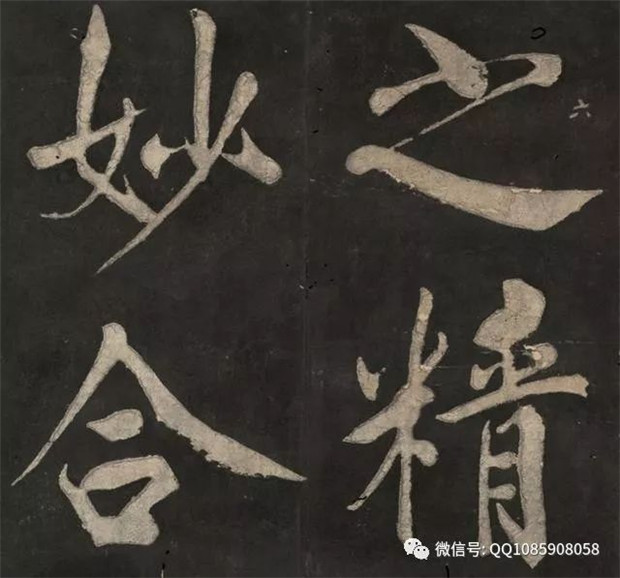 之精
妙合
六
微信号: QQ1085908058